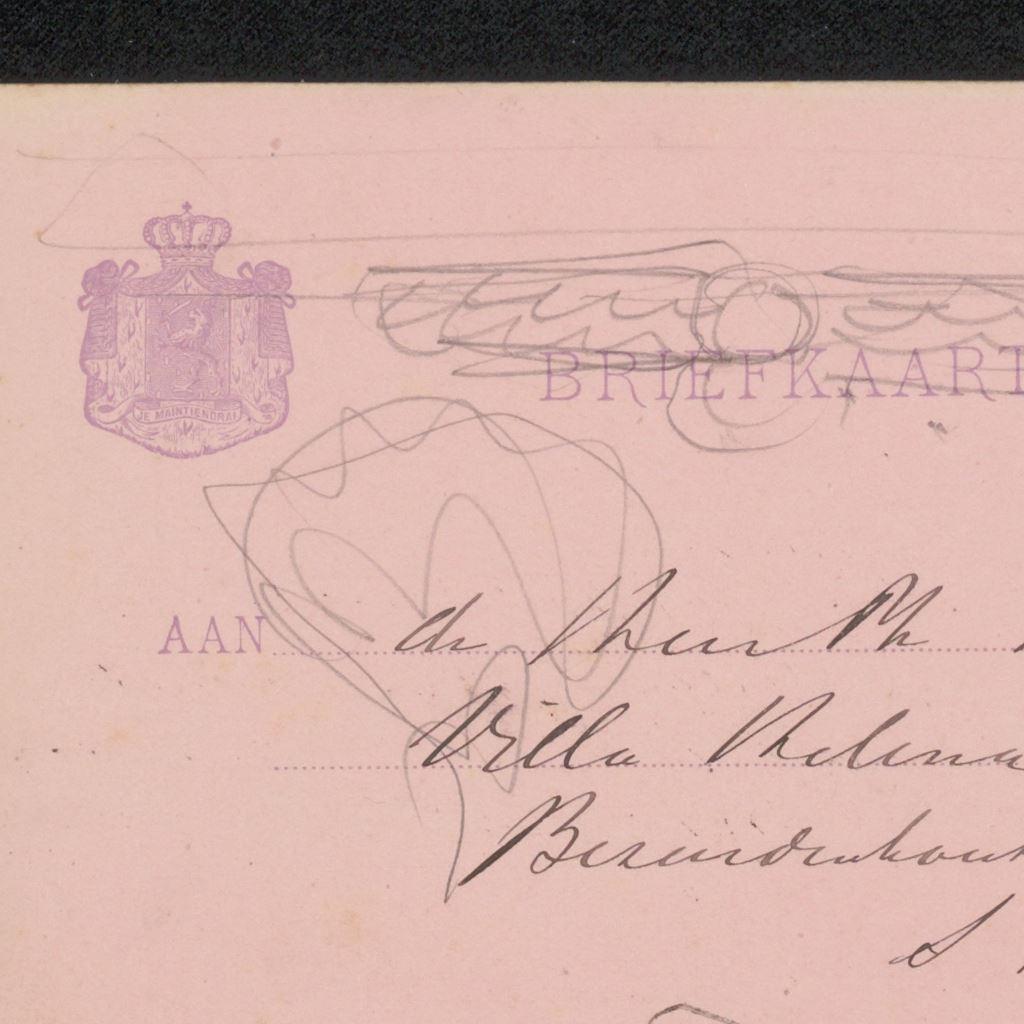 JE MAINTIENDRAI
BRIEFKAART
AAN de Heer Ph
Villa Helena
Bezuidenhout
S